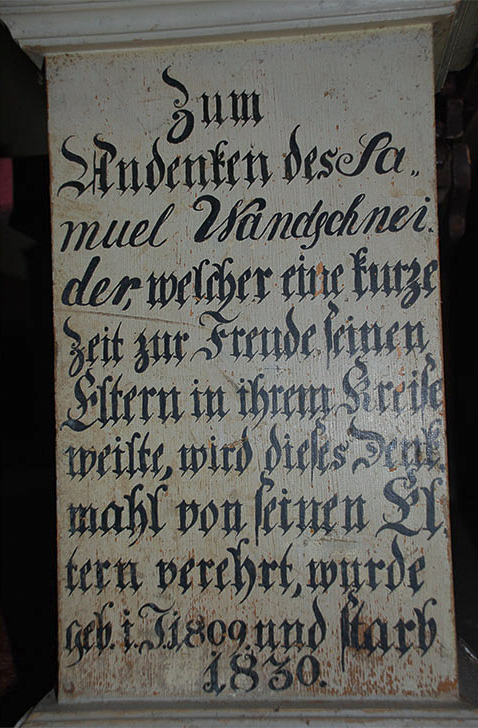 Zum
Andenken des Sa„
muel Wandschnei.
der, welcher eine kurze
Zeit zur Freude seinen
Eltern in ihrem Kreise
weilte, wird dieses Denk
mahl von seinen El.
tern verehrt, wurde
geb. i. J. 1809. und starb
1830.